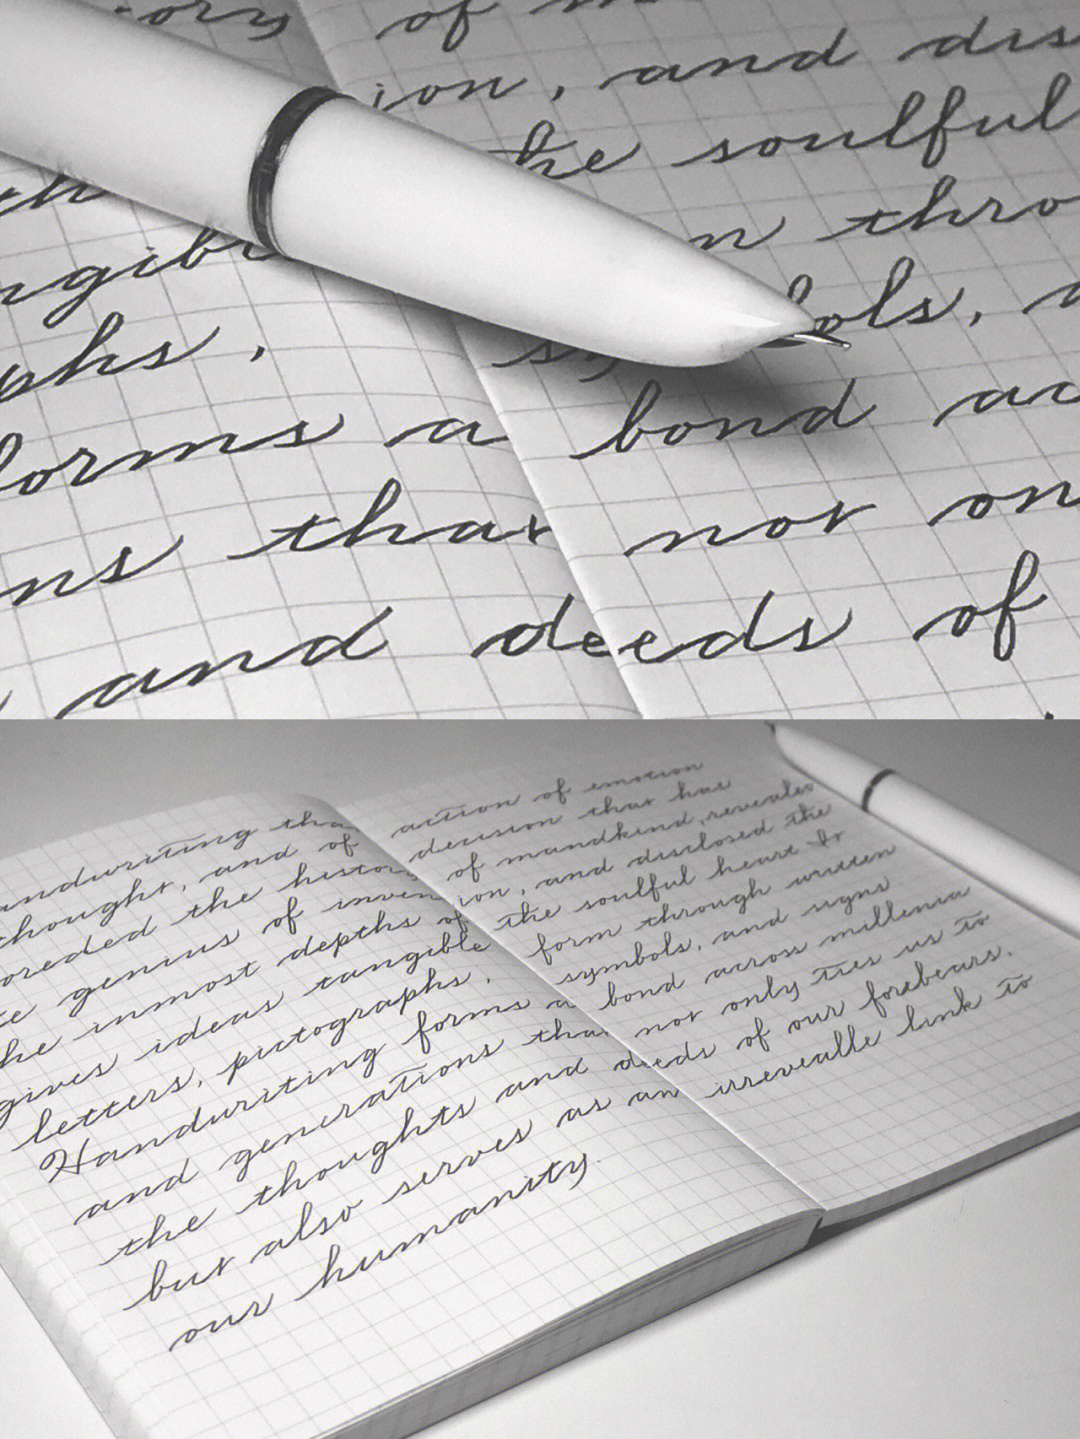 ory of
ion, and dis
he soulful
ngibl n thro
phs, ols,
forms a bond ac
ns that not on
and deeds of
andwriting tha action of emotion
thought, and of decision that has
oreded the history of mandkind, revealed
e genius of invention, and disclosed the
he inmost depths of the soulful heart. It
gives ideas tangible form through written
letters, pictographs, symbols, and signs.
Handwriting forms a bond across millenia
and generations that not only ties us to
the thoughts and deeds of our forebears,
but also serves as an irrevealle link to
our humanity.